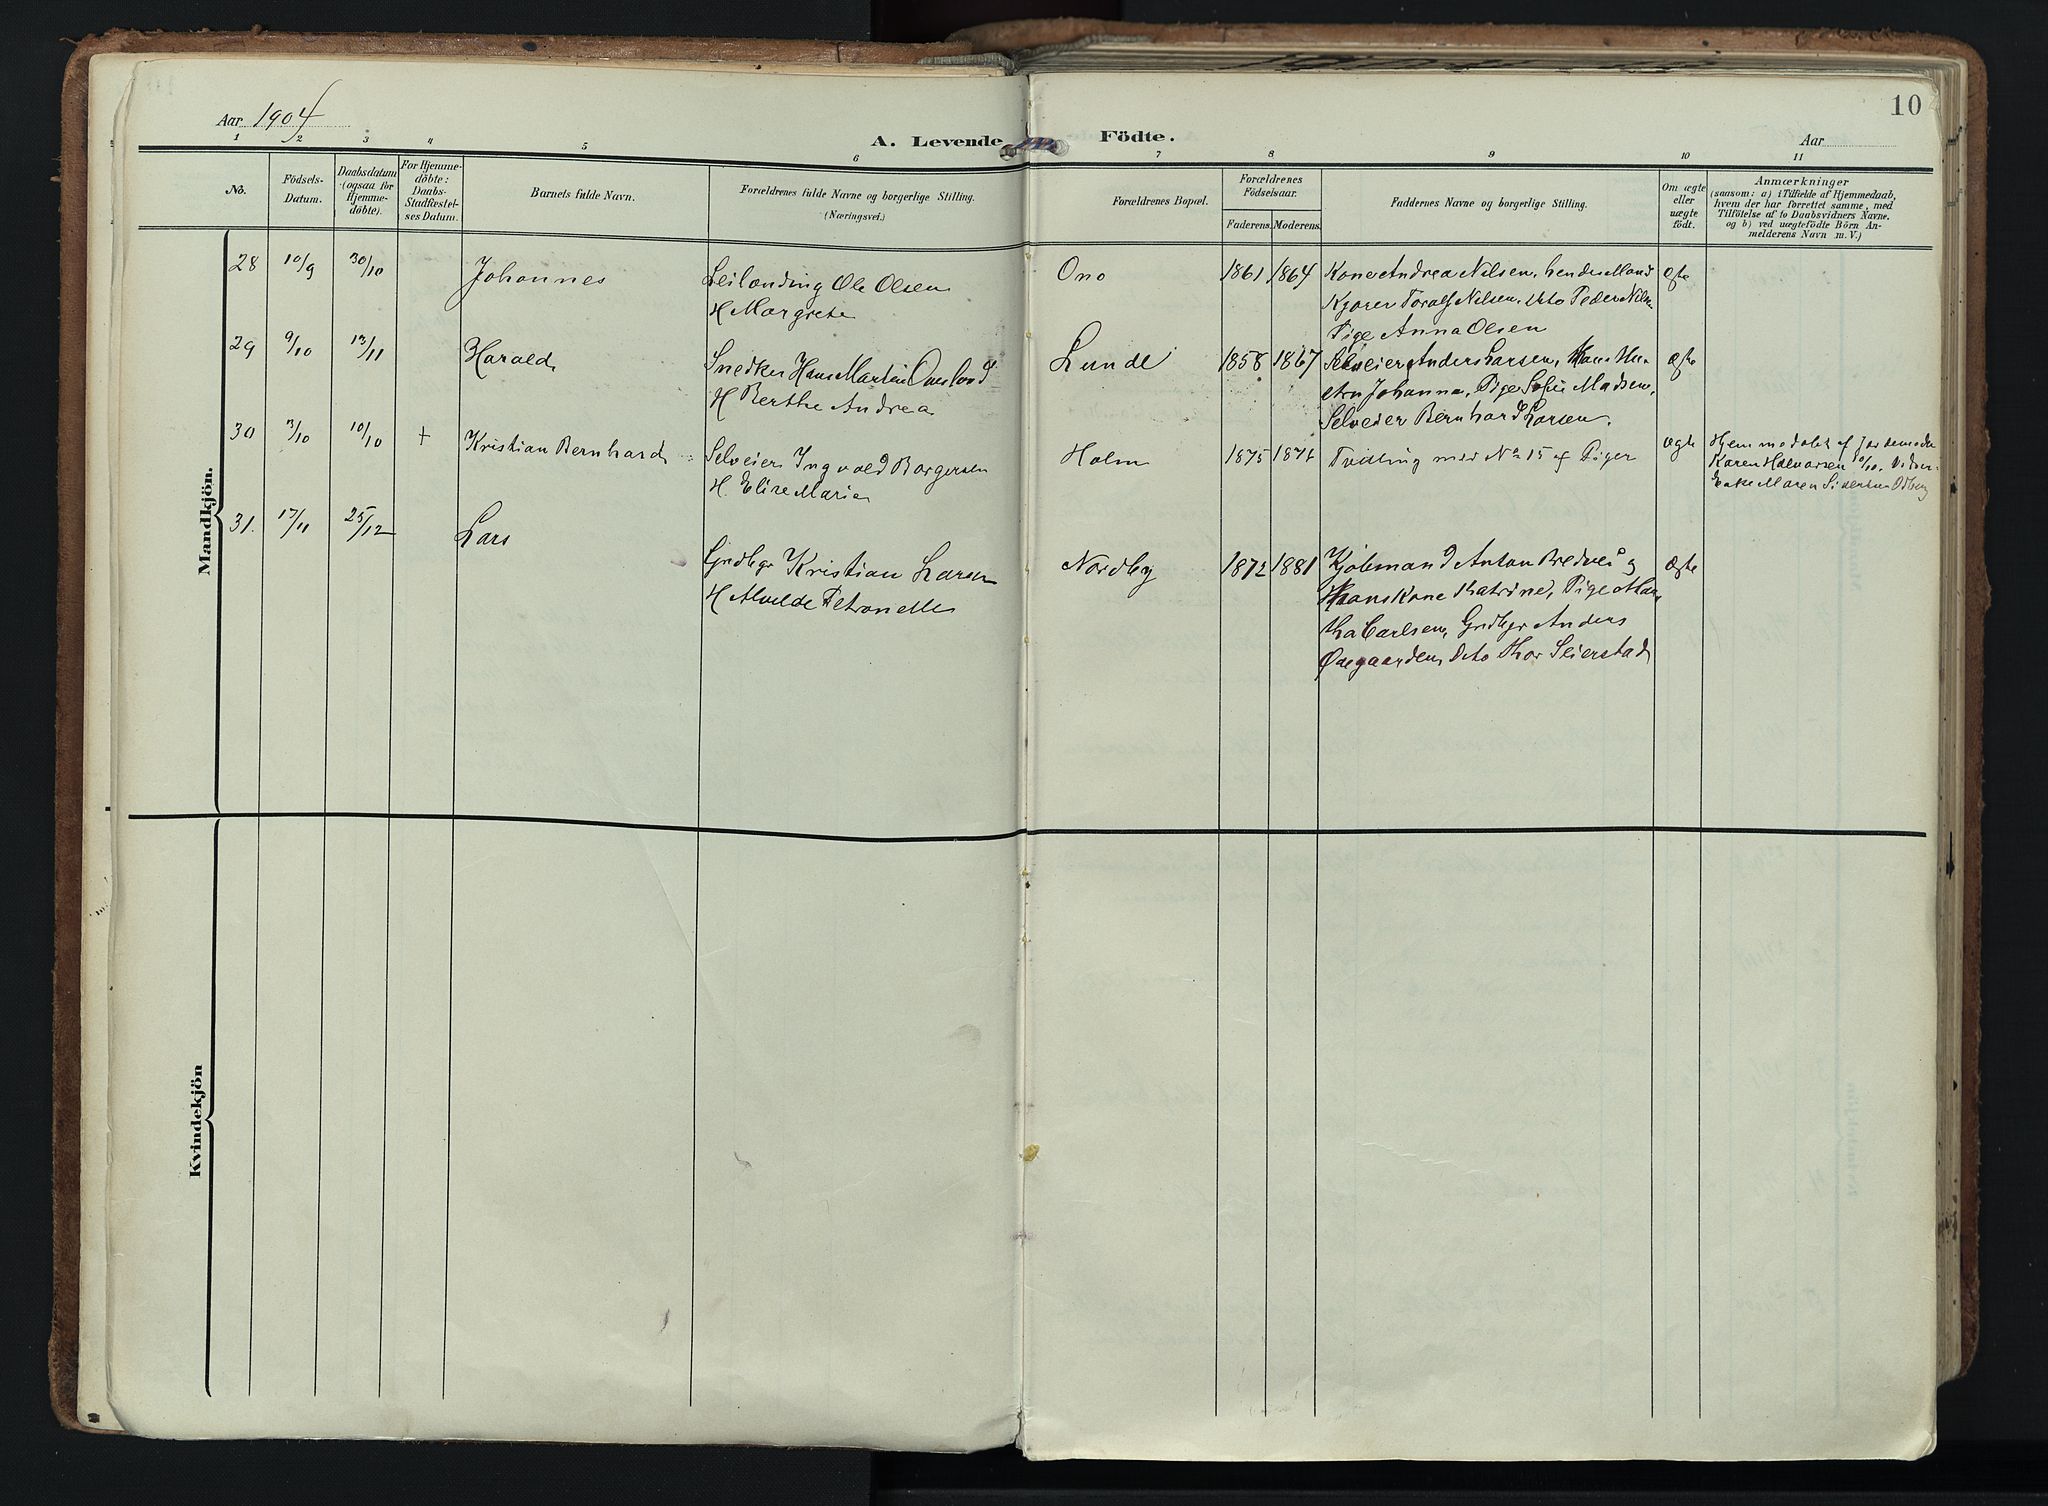 Aar 1904
10
A. Levende Födte.
Aar
1 2 3 4 5 6 7 8 9 10 11
No.
Födsels-
Datum.
Daabsdatum
(ogsaa for
Hjemme-
döbte).
For Hjemme-
döbte:
Daabs-
Stadfæstel-
ses Datum.
Barnets fulde Navn.
Forældrenes fulde Navne og borgerlige Stilling.
(Næringsvei.)
Forældrenes Bopæl.
Forældrenes
Födselsaar.
Faderens. Moderens.
Faddernes Navne og borgerlige Stilling.
Om ægte
eller
uægte
födt.
Anmærkninger
(saasom: a) i Tilfælde af Hjemmedaab,
hvem der har forrettet samme, med
Tilföielse af to Daabsvidners Navne.
og b) ved uægtefödte Börn An-
melderens Navn m. V.)
Mandkjön.
28 10/9 30/10 Johannes
Leilænding Ole Olsen
H Margrete
Ono 1861 1864
Kone Andrea Nilsen, hendes Mand
Kjører Toralf Nilsen, Dito Peder Nilsn
Pige Anna Olsen
Ægte
29 9/10 13/11 Harald
Snedker Hans Martin
H Berthe Andrea
Lunde 1858 1867
Selveier Anders Larsen, Hans Hu-
stru Johanna, Pige Sofie Madsen,
Selveier Bernhard Larsen.
Ægte
30 3/10 10/10 + Kristian Bernhard
Selveier Ingvald Borgersen
H. Elise Marie
Holm 1875
Tvilling med No 15 af Piger
Ægte
Hjemmedøbt af Jordemoder
Karen Halvorsen 10/10.
Enke Maren
31. 17/11 25/12 Lars
Grdbgr Kristian Larsen
H Alvilde Petronelle
Nordby 1872 1881
Kjøbmand Anton Bredvei og
Hans Kone Katrine, Pige Mar-
tha Carlsen, Grdbgr Anders
Øvegaarden, Dito Thor Seierstad
Ægte
Kvindekjön